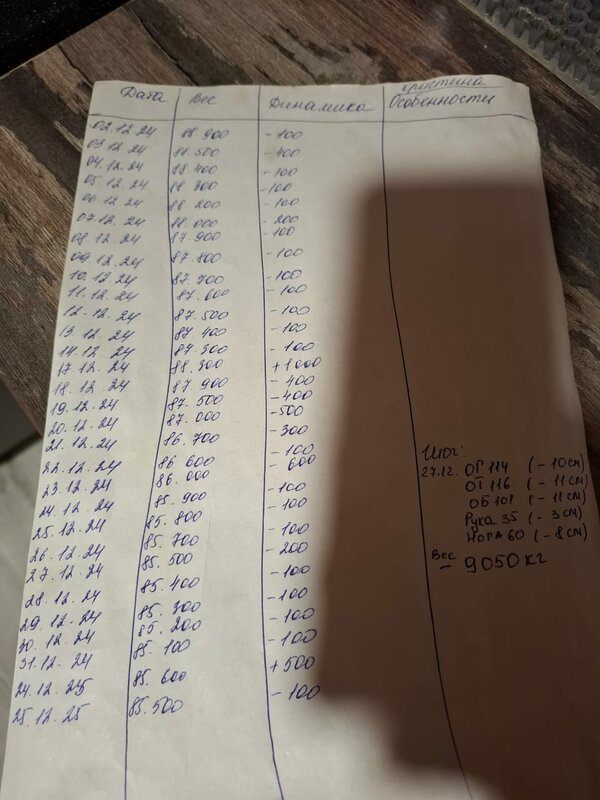 Кристина
Дата Вес Динамика Особенности
02.12.24 88.900 -100
03.12.24 88.500 -400
04.12.24 88.400 -100
05.12.24 88.300 -100
06.12.24 88.200 -100
07.12.24 88.000 -200
08.12.24 87.900 -100
09.12.24 87.800 -100
10.12.24 87.700 -100
11.12.24 87.600 -100
12.12.24 87.500 -100
13.12.24 87.400 -100
14.12.24 87.300 -100
17.12.24 88.300 +1000
18.12.24 87.900 -400
19.12.24 87.500 -400
20.12.24 87.000 -500
21.12.24 86.700 -300
22.12.24 86.600 -100
23.12.24 86.000 -600
24.12.24 85.900 -100
25.12.24 85.800 -100
26.12.24 85.700 -100
27.12.24 85.500 -200
28.12.24 85.400 -100
29.12.24 85.300 -100
30.12.24 85.200 -100
31.12.24 85.100 -100
24.12.25 85.600 +500
25.12.25 85.500 -100
Итог:
27.12. ОГ 114 (-10см)
ОТ 116 (-11см)
ОБ 101 (-11см)
Рука 35 (-3см)
НОГА 60 (-8см)
Вес
– 9050кг